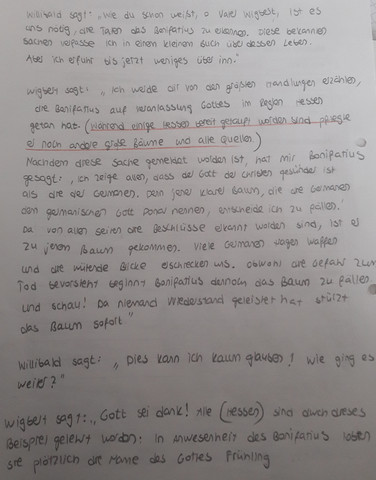 Willibald sagt: „Wie du schon weißt, o Vater Wigbert, ist es
uns nötig, die Taten des Bonifatius zu erkennen. Diese bekannten
Sachen verfasse ich in einem kleinem Buch über dessen Leben.
Aber ich erfuhr bis jetzt weniges über ihn."
Wigbert sagt: „Ich werde dir von den größten Handlungen erzählen,
die Bonifatius auf Veranlassung Gottes im Region Hessen
getan hat. (Während einige Hessen bereit getauft worden sind pflegte
er noch andere große Bäume und alte Quellen.)
Nachdem diese Sache gemeldet worden ist, hat mir Bonifatius
gesagt: „Ich zeige allen, dass der Gott der Christen gesünder ist
als die der Germanen. Denn jener klarer Baum, die die Germanen
den germanischen Gott Donar nennen, entscheide ich zu fällen.'
Da von allen seiten die Beschlüsse erkannt worden sind, ist er
zu jenem Baum gekommen. Viele Germanen tragen Waffen
und die wütende Blicke erschrecken uns. Obwohl die Gefahr zum
Tod bevorsteht beginnt Bonifatius dennoch das Baum zu fällen
und schau! Da niemand Wiederstand geleistet hat stürzt
das Baum sofort"
Willibald sagt: „Dies kann ich kaum glauben! Wie ging es
weiter?"
Wigbert sagt: „Gott sei dank! Alle (Hessen) sind durch dieses
Beispiel gelehrt worden: In Anwesenheit des Bonifatius loben
sie plötzlich die Name des Gottes Frühling